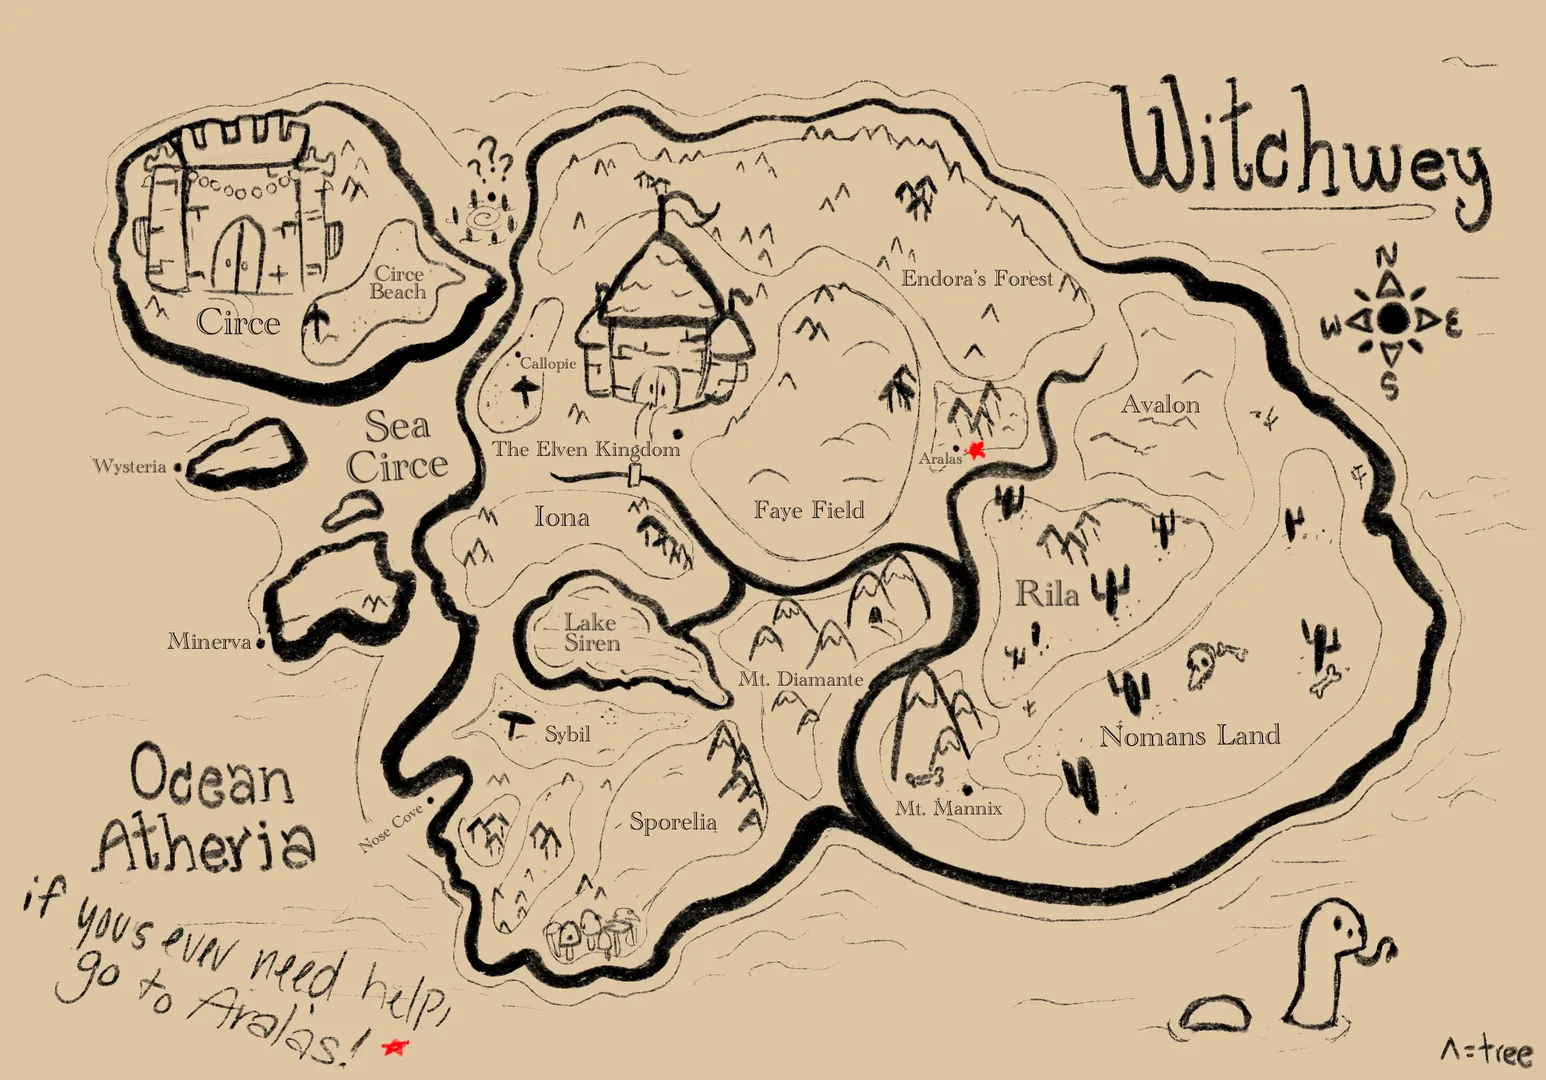 Witchwey
???
N
W E
S
Circe
Beach
Circe
Endora's Forest
Callopie
Avalon
Sea
Circe
The Elven Kingdom
Aralas
Wysteria
Faye Field
Iona
Rila
Lake
Siren
Minerva
Mt. Diamante
Sybil
Nomans Land
Ocean
Atheria
Nose Cove
Sporelia
Mt. Mannix
if yous ever need help,
go to Aralas!
^=tree